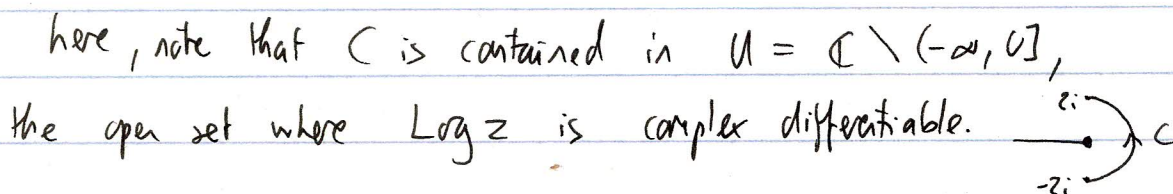 here, note that C is contained in U = ℂ \ (-∞, 0],
the open set where Log z is complex differentiable.
2i
C
-2i